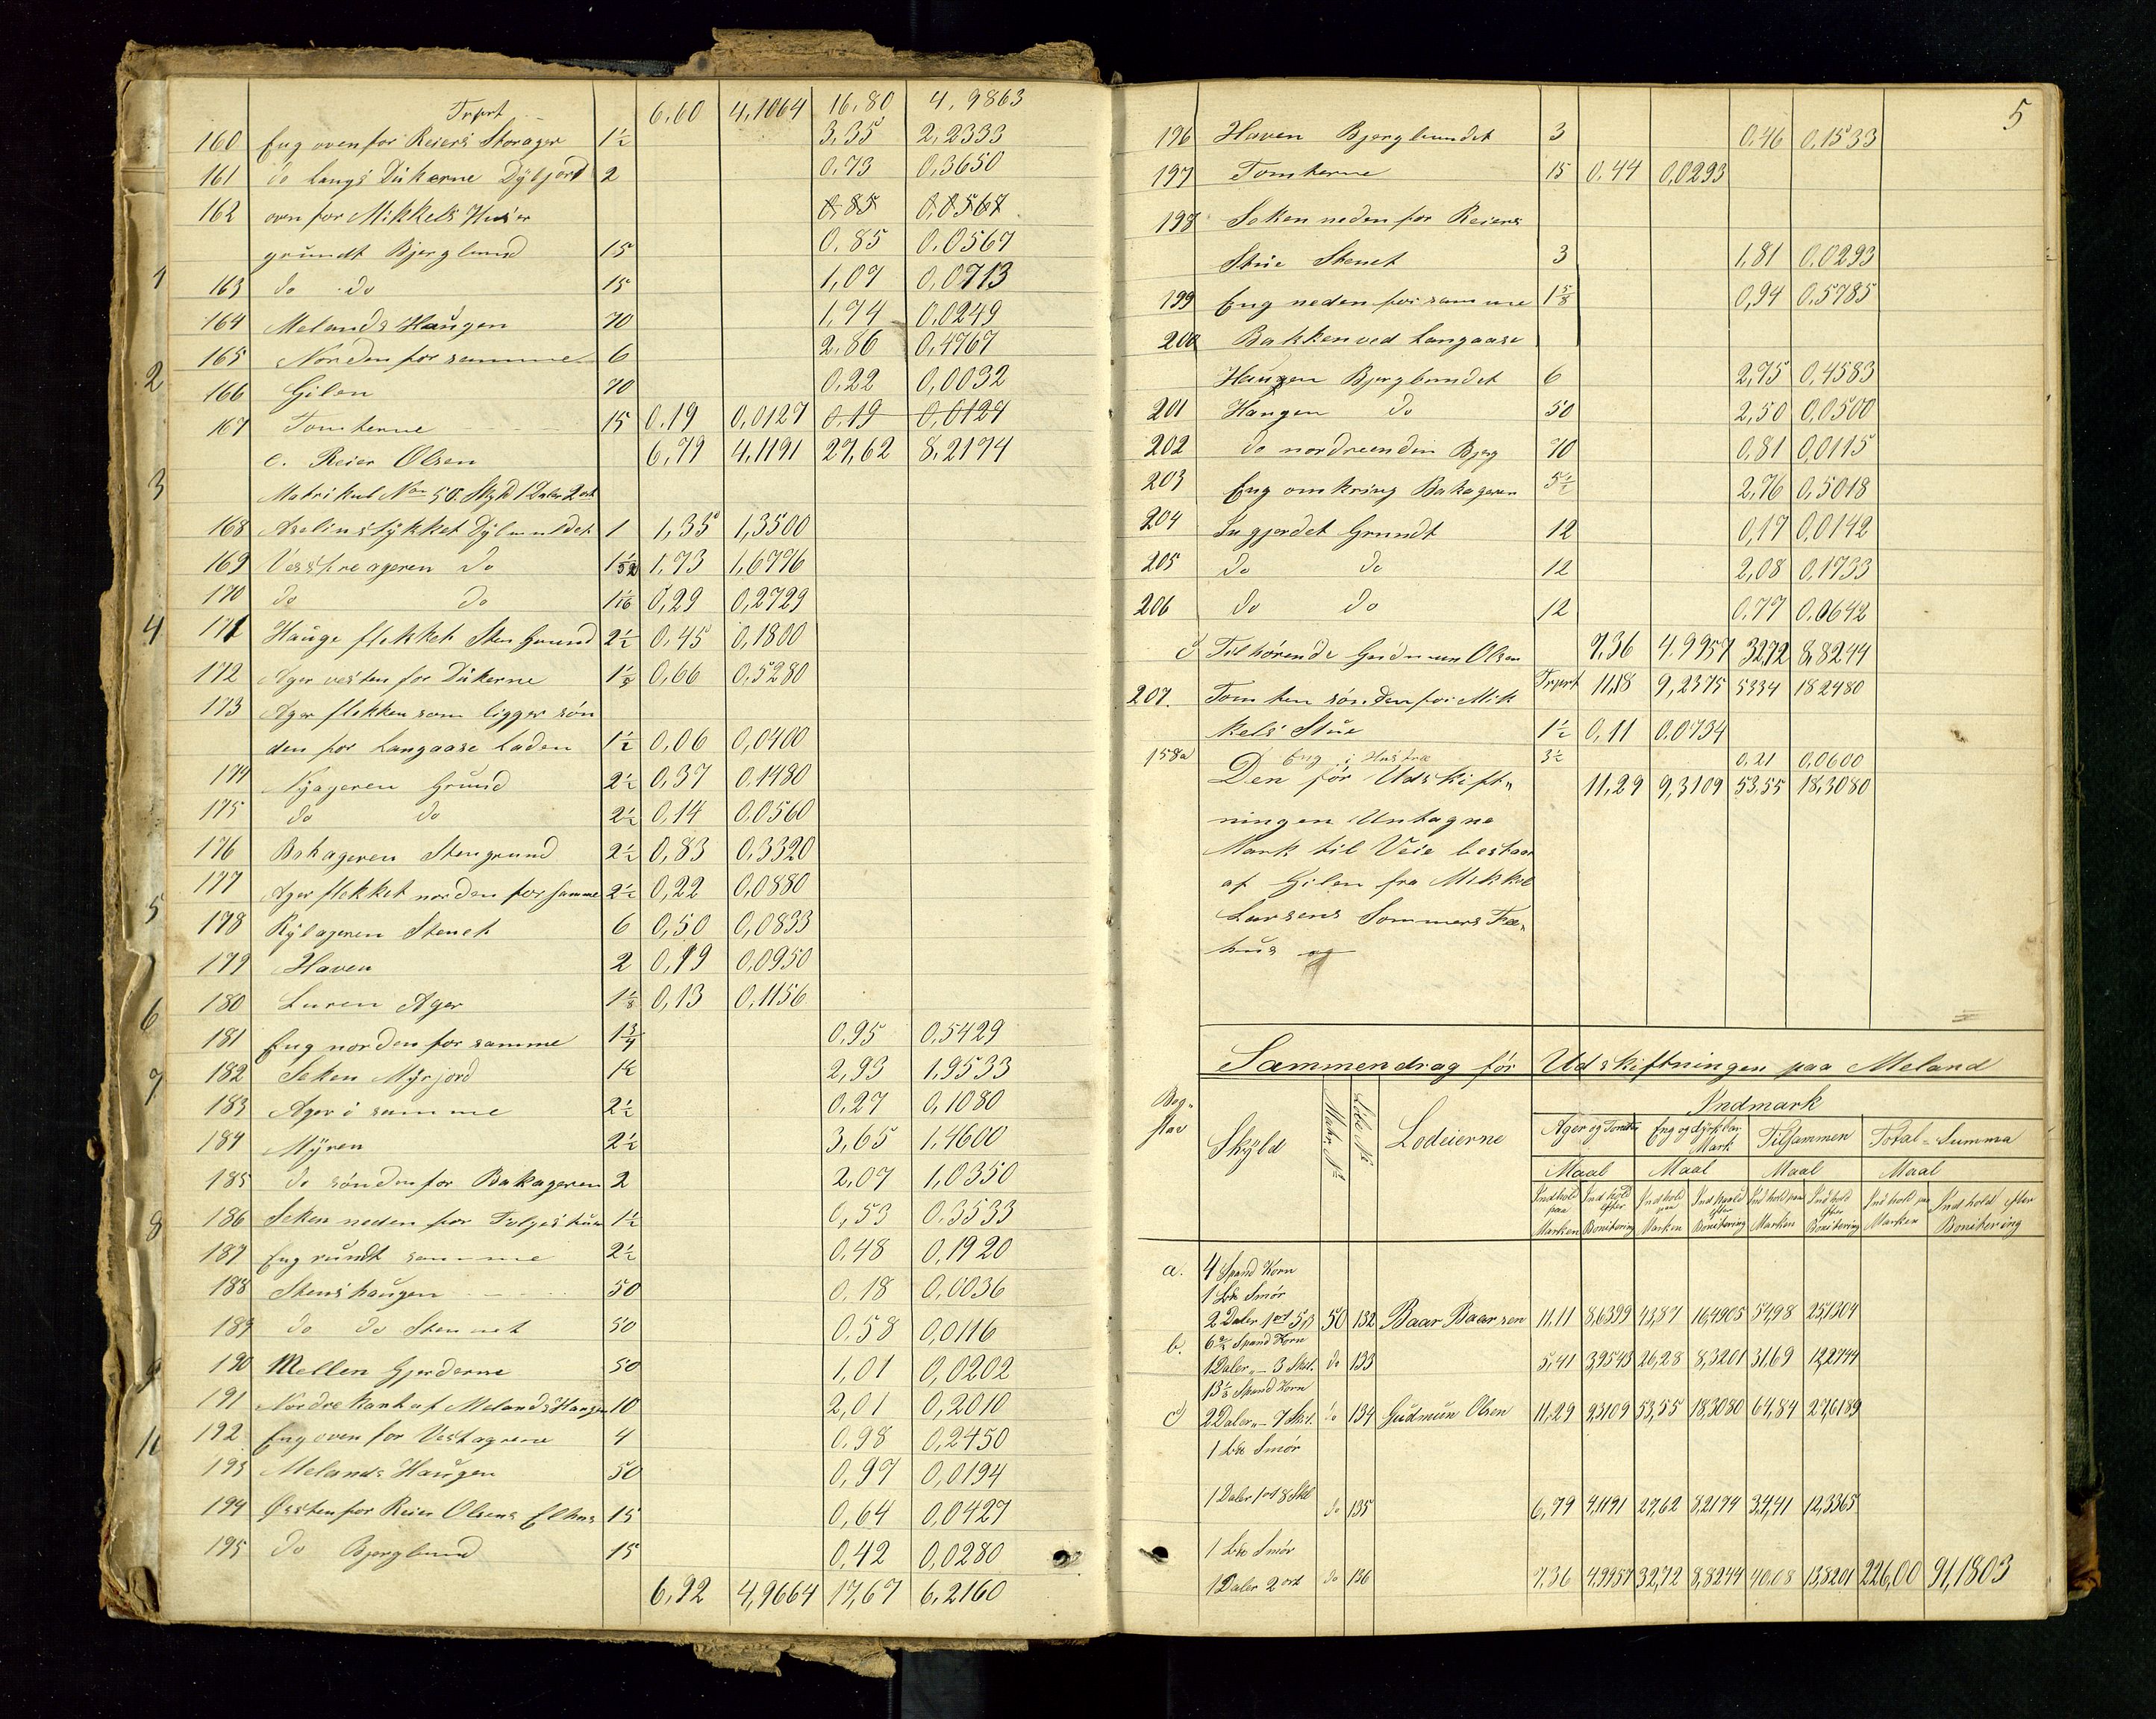 Trprt 6,60 4,1064 16,80 4,9863
160 Eng ovenfor Reiers Storager 1½ 3,35 2,2333
161 do langs Dikerne Dybjord 2 0,73 0,3650
162 ovenfor Mikkels Huser 0,85 0,0567
grundt Bjerglund 15 0,85 0,0567
163 do do 15 1,07 0,0713
164 Melands Haugen 70 1,74 0,0249
165 Norden for samme 6 2,86 0,4767
166 Gilen 70 0,22 0,0032
167 Tomterne 15 0,19 0,0127 0,19 0,0127
e. Reier Olsen 6,79 4,1191 27,62 8,2174
Matrikul No 50. Skyld 1 Daler 2 ort
168 Dybmuldet 1 1,35 1,3500
169 Vesstreageren do 1 1/32 1,73 1,6776
170 do do 1 1/16 0,29 0,2729
171 Hauge flekket Sten Grund 2½ 0,45 0,1800
172 Ager vesten for Dikerne 1¼ 0,66 0,5280
173 Ager flekken som ligger søn
den for Langaase Laden 1½ 0,06 0,0400
174 Nyageren Grund 2½ 0,37 0,1480
175 do do 2½ 0,14 0,0560
176 Bakageren Stengrund 2½ 0,83 0,3320
177 Ager flekket norden for samme 2½ 0,22 0,0880
178 Rylageren Stenet 6 0,50 0,0833
179 Haven 2 0,19 0,0950
180 Luren Ager 1⅛ 0,13 0,1156
181 Eng norden for samme 1¾ 0,95 0,5429
182 Seken Myrjord 1½ 2,93 1,9533
183 Ager i samme 2½ 0,27 0,1080
184 Myren 2½ 3,65 1,4600
185 do sønden for Bakageren 2 2,07 1,0350
186 Seken neden for 1½ 0,53 0,3533
187 Eng rundt samme 2½ 0,48 0,1920
188 Stenshaugen 50 0,18 0,0036
189 do do Stennet 50 0,58 0,0116
190 Mellen Gjerderne 50 1,01 0,0202
191 Nordre kant af Melands Haugen 10 2,01 0,2010
192 Eng oven for Vestagrene 4 0,98 0,2450
193 Melands Haugen 50 0,97 0,0194
194 Østen for Reier Olsens 15 0,64 0,0427
195 do Bjerglund 15 0,42 0,0280
6,92 4,9664 17,67 6,2160
1
2
3
4
5
6
7
8
9
10
5
196 Haven Bjerglundet 3 0,46 0,1533
197 Tomterne 15 0,44 0,0293
198 Seken neden for Reiers
Stue Stenet 3 1,81 0,0293
199 Eng neden for samme 1⅝ 0,94 0,5785
200 Bakken ved Langaase
Haugen Bjerglundet 6 2,75 0,4583
201 Haugen do 50 2,50 0,0500
202 do nordreenden Bjerg 70 0,81 0,0115
203 Eng omkring Bakageren 5½ 2,76 0,5018
204 Grundt 12 0,17 0,0142
205 do do 12 2,08 0,1733
206 do do 12 0,77 0,0642
d Tilhørende Gudmun Olsen 7,36 4,9957 32,72 8,8244
207. Tomten sønden for Mik Trprt 11,18 9,2375 5334 182480
kels Stue 1½ 0,11 0,0734
158a Eng i Hustræ 3½ 0,21 0,0600
Den før Udskift„ 11,29 9,3109 53,55 18,3080
ningen Untagne
Mark til Veie bestaar
af Gilen fra Mikkel
Larsens Sommers Fæ„
hus og
Sammendrag før Udskiftningen paa Meland
Bog„
stav
Skyld Matr. No Løbe No Lodeierne Indmark
Ager og Tomter Eng og dyrkbar Mark Tilsammen Total=Summa
Maal Maal Maal Maal
Indhold paa Marken Indhold efter Bonitering Indhold paa Marken Indhold efter Bonitering Indhold paa Marken Indhold efter Bonitering Indhold paa Marken Indhold efter Bonitering
a. 4 Spand Korn
1 Smør
2 Daler 1 ort 5 50 132 Baar Baarsen 11,11 8,6399 43,87 16,4905 54,98 25,1304
b. Spand Korn
1 Daler „ - 3 Skl. do 133 5,41 3,9543 26,28 8,3201 31,69 12,2744
13⅓ Spand Korn
c d 2 Daler „ - 7 Skl. do 134 Gudmun Olsen 11,29 9,3109 53,55 18,3080 64,84 27,6189
1 Smør
1 Daler 1 ort 8 Skl do 135 6,79 4,1191 27,62 8,2174 34,41 12,3365
1 Smør
1 Daler 2 ort do 136 7,36 4,9957 32,72 8,8244 40,08 13,8201 226,00 91,1803